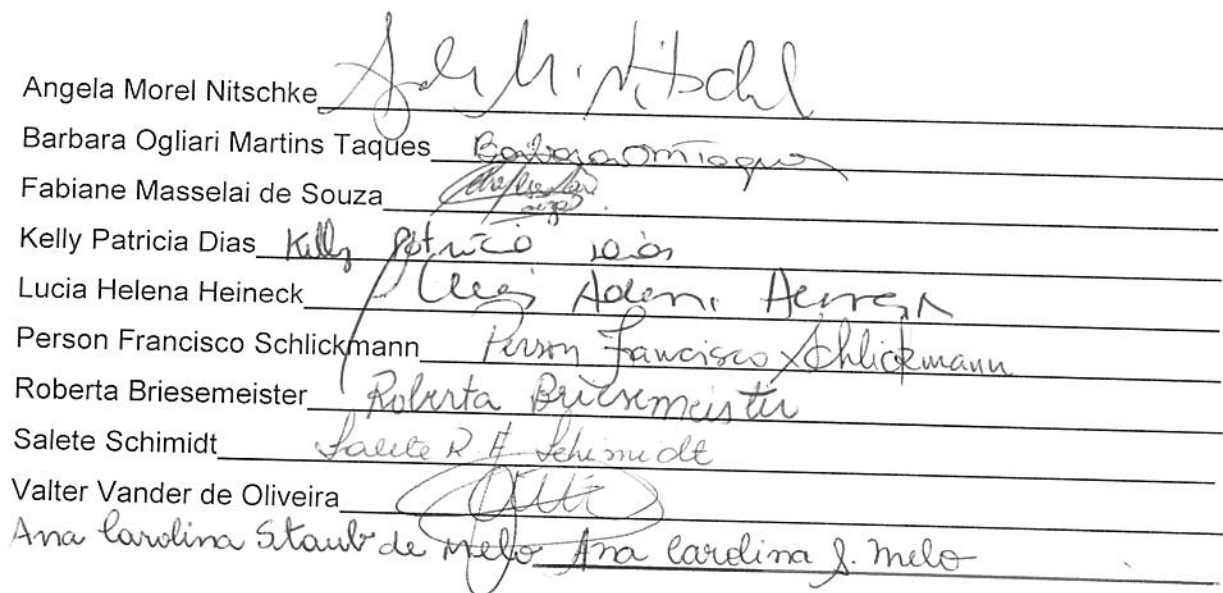 Angela Morel Nitschke
Barbara Ogliari Martins Taques
Fabiane Masselai de Souza
Kelly Patricia Dias Kelly Patricia Dias
Lucia Helena Heineck
Person Francisco Schlickmann Person Francisco Schlickmann
Roberta Briesemeister Roberta Briesemeister
Salete Schimidt Salete R Schimidt
Valter Vander de Oliveira
Ana Carolina Staub de Melo Ana Carolina S. Melo